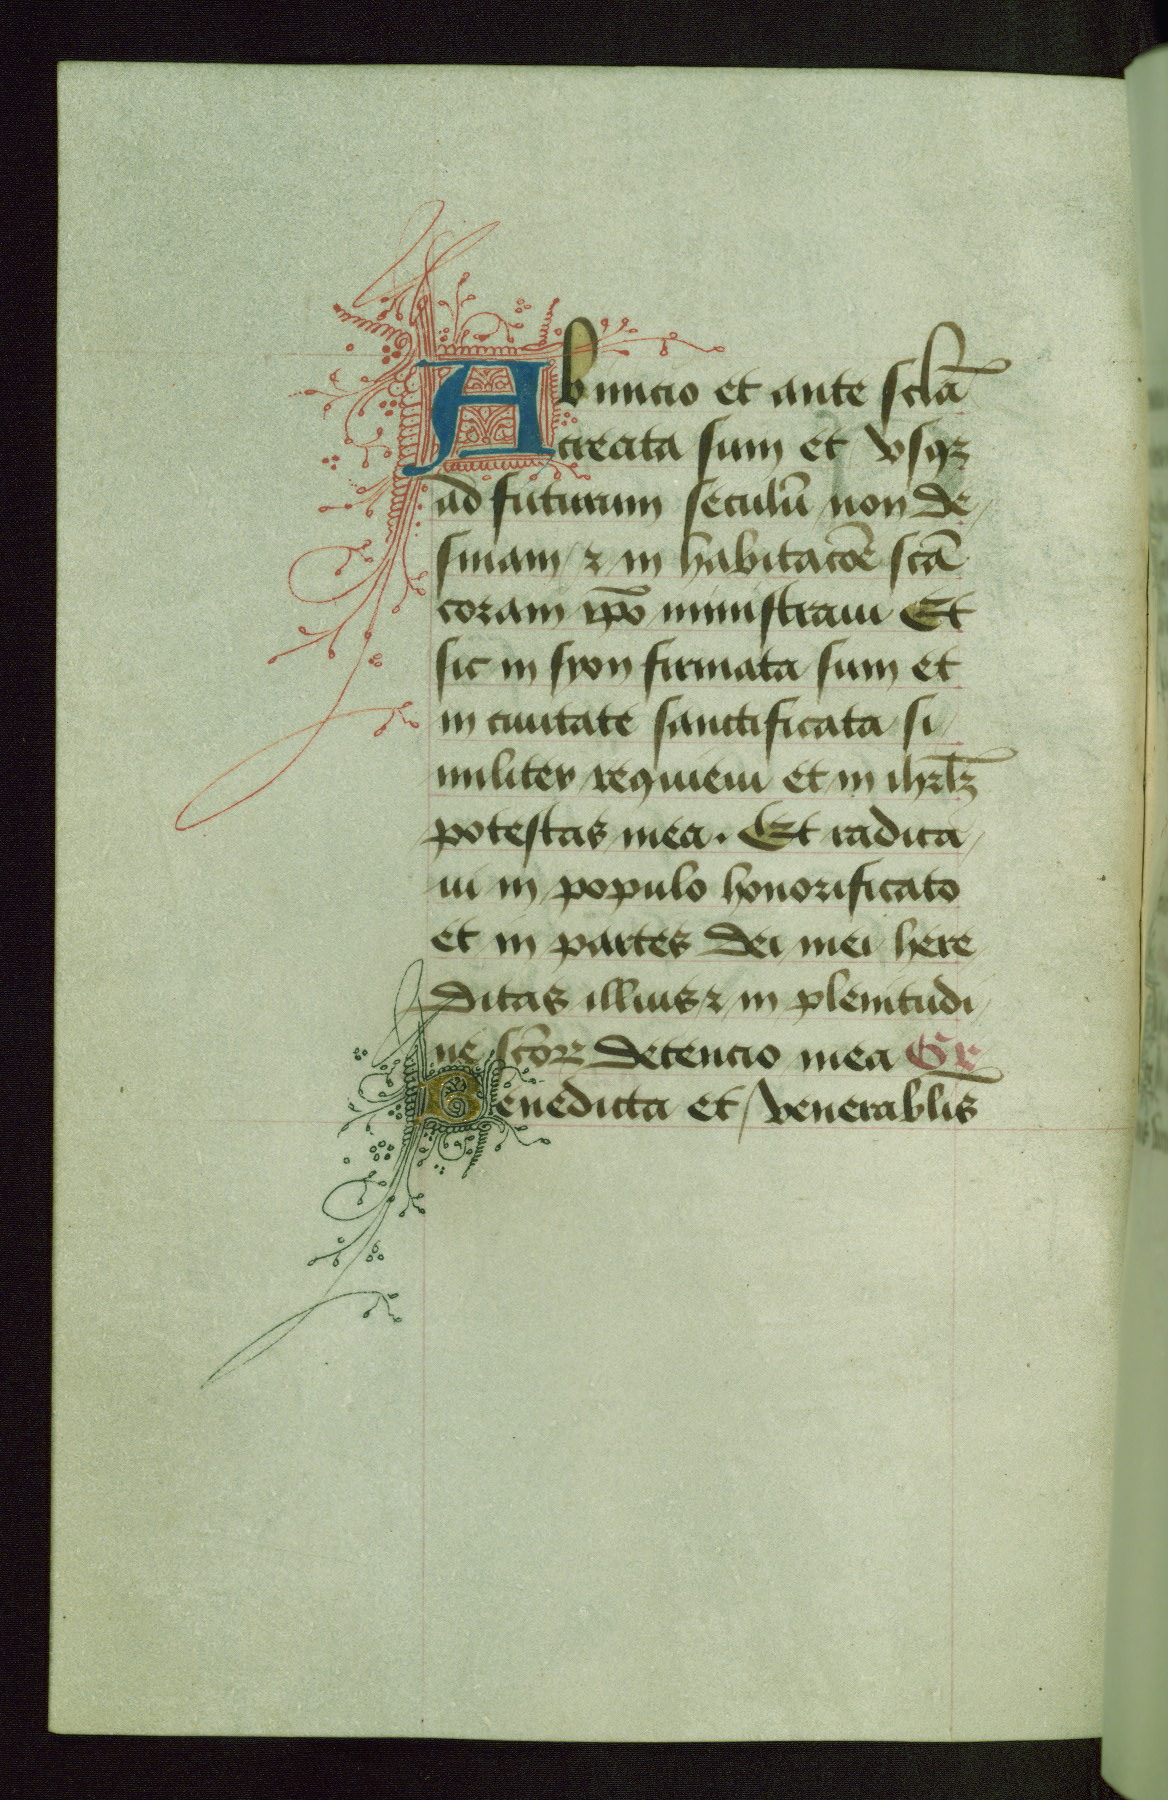 Ab inicio et ante sclā
creata sum et vsqꝫ
ad futurum seculū non de
sinam / ⁊ in habitacōe scā
coram ip̄o ministraui Et
sic in syon firmata sum et
in ciuitate sanctificata si
militer requieui et in ihrlꝫ
potestas mea. Et radica
ui in populo honorificato
et in partes dei mei here
ditas illius ⁊ in plenitudi
ne scōꝝ detencio mea Gr̄
Benedicta et venerablis̄